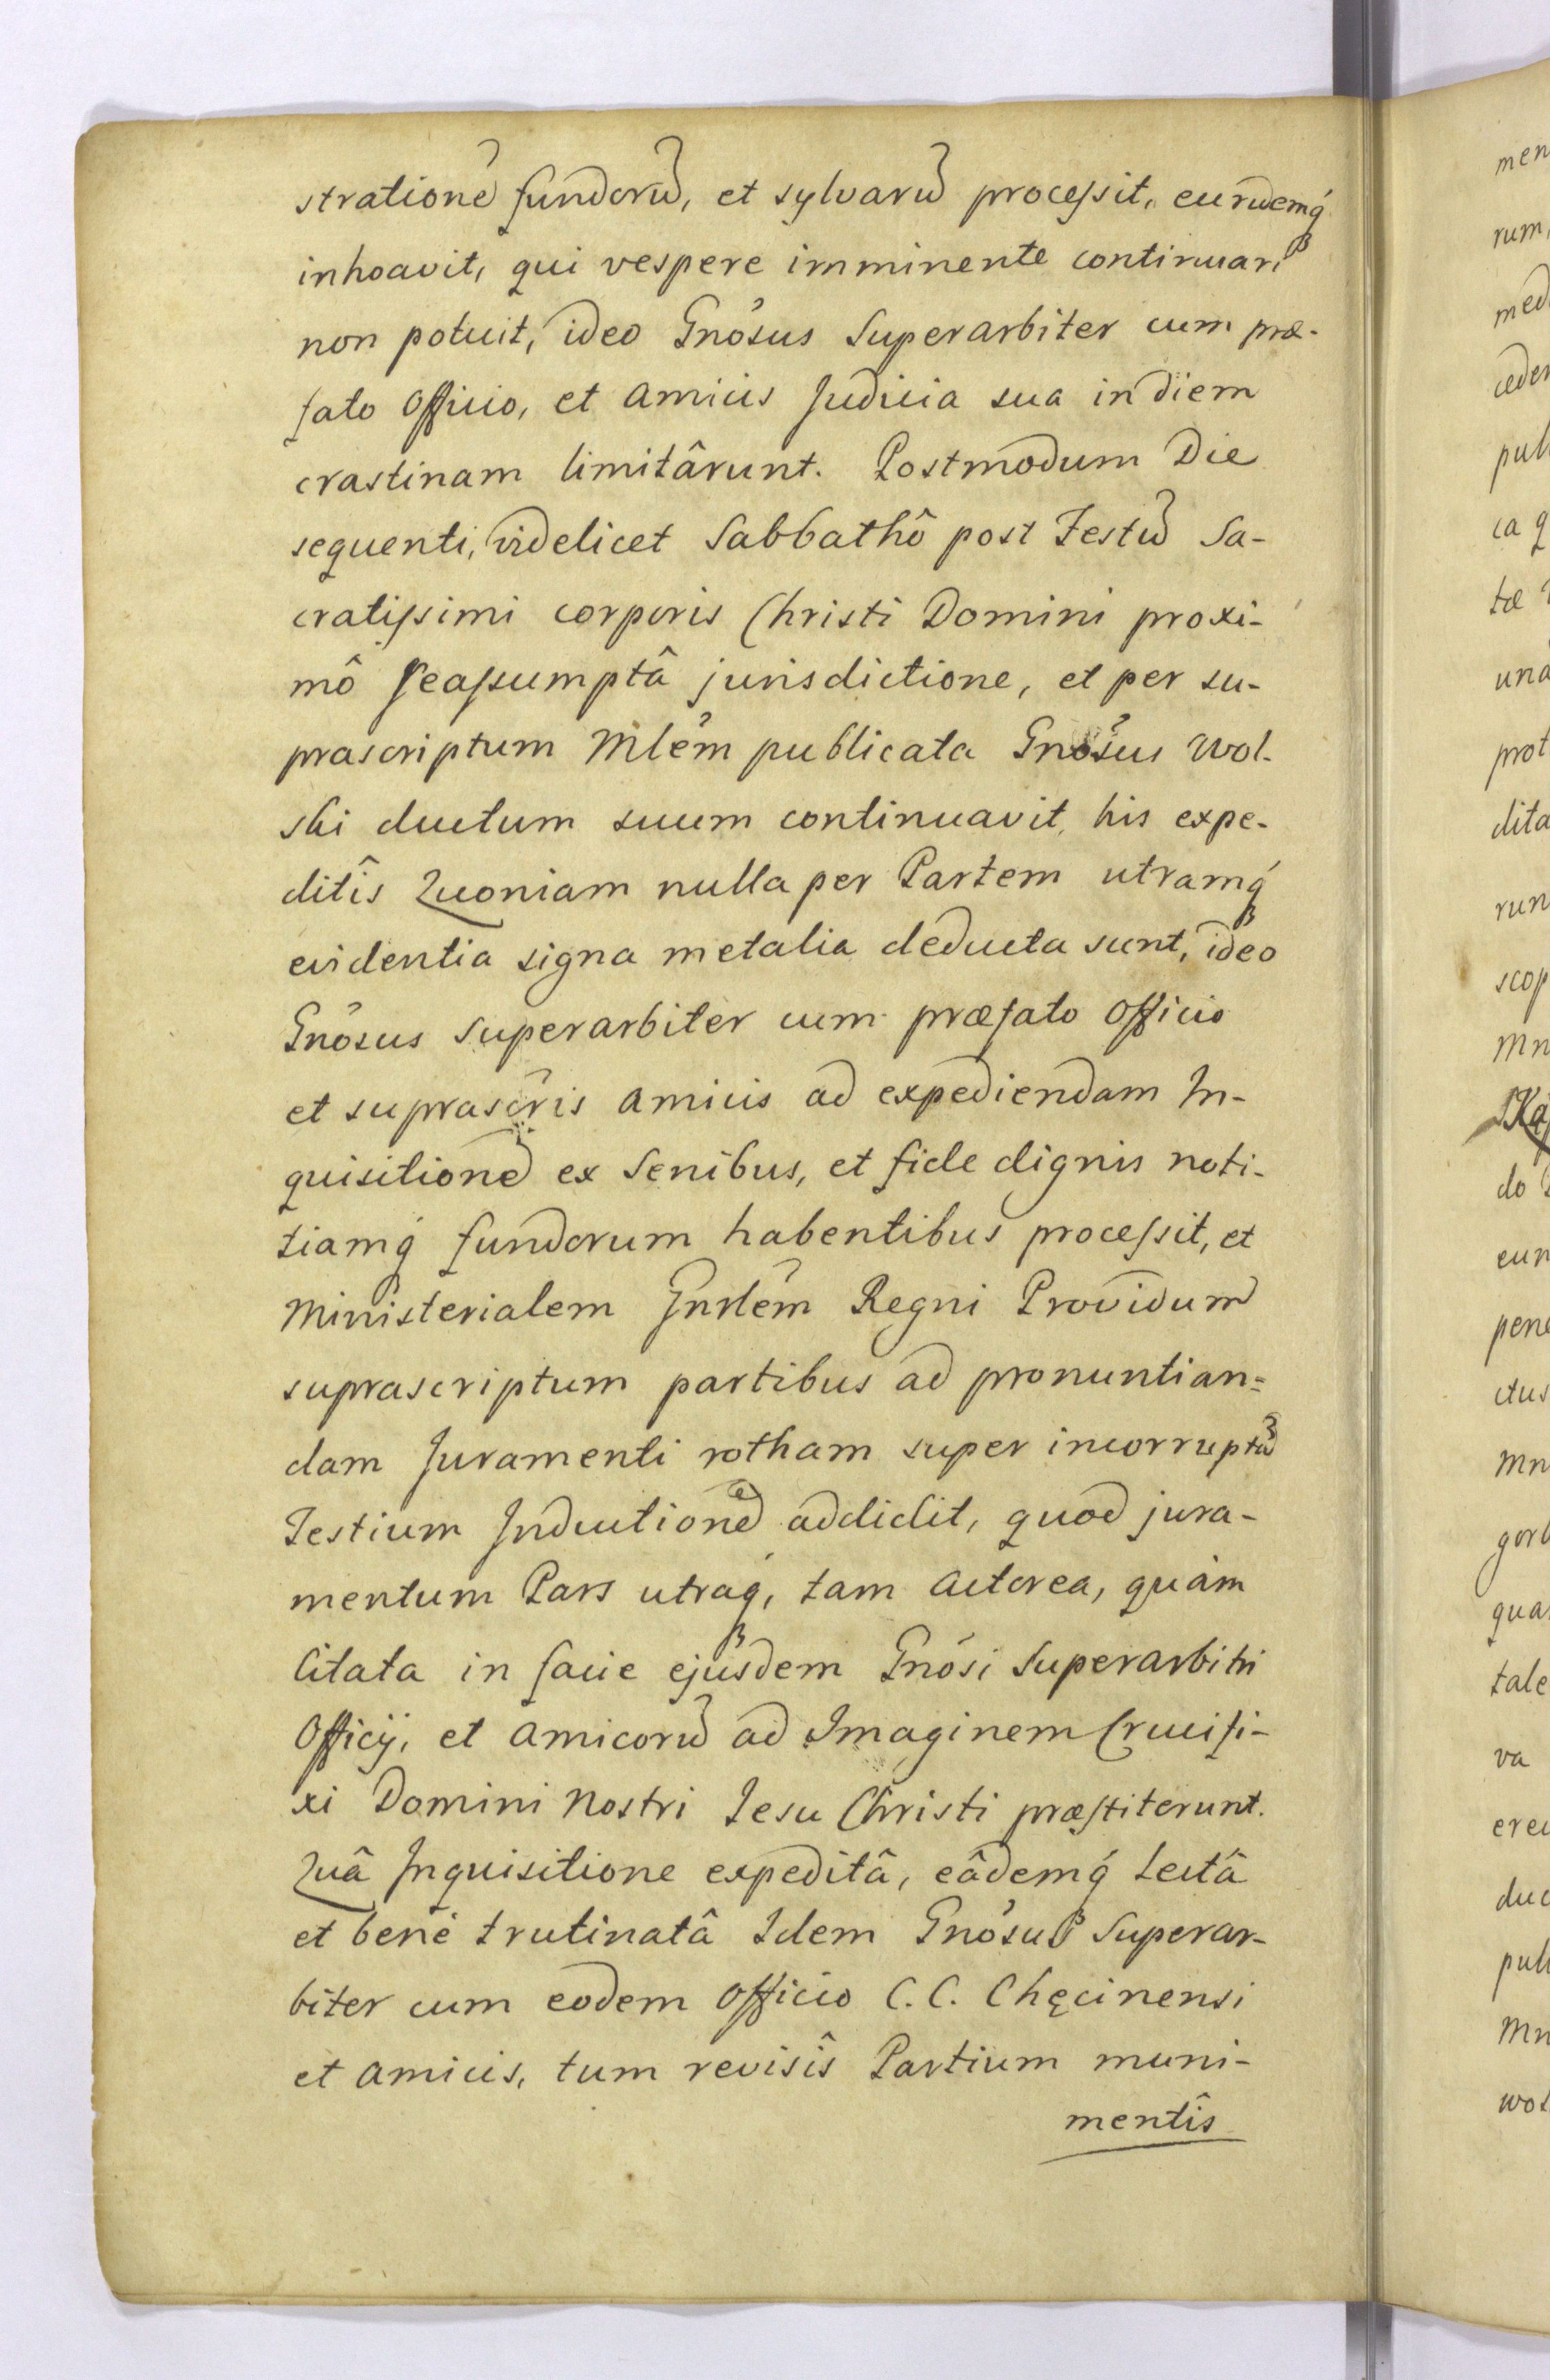 strationē fundorū, et sylvarū processit, eundemq́
inhoavit, qui vespere imminente continuari
non potuit, ideo Gnõsus Superarbiter cum præ-
fato Officio, et Amicis Judicia sua in diem
crastinam limitârunt. Postmodum Die
sequenti, videlicet Sabbathô post Festū Sa-
cratissimi corporis Christi Domini proxi-
mô reassumptâ jurisdictione, et per su-
prascriptum Mlēm publicata Gnõsus Wol-
ski ductum suum continuavit, his expe-
ditîs Quoniam nulla per Partem utramq́
evidentia signa metalia deducta sunt, ideo
Gnõsus Superarbiter cum præfato Officio
et suprascr̃is Amicis ad expediendam In-
quisitionē ex Senibus, et fide dignis noti-
tiamq́ fundorum habentibus processit, et
Ministerialem Gnrlēm Regni Providum
suprascriptum partibus ad pronuntian=
dam Juramenti rotham super incorruptū
Testium Inductionē addidit, quod jura-
mentum Pars utraq́, tam Actorea, quàm
Citata in facie ejusdem Gnõsi Superarbitri
Officij, et Amicorū ad Imaginem Crucifi-
xi Domini Nostri Jesu Christi præstiterunt.
Quâ Inquisitione expeditâ, eâdemq́ lectâ
et benè trutinatâ Idem Gnõsus Superar-
biter cum eodem Officio C. C. Chęcinensi
et Amicis, tum revisîs Partium muni-
mentîs